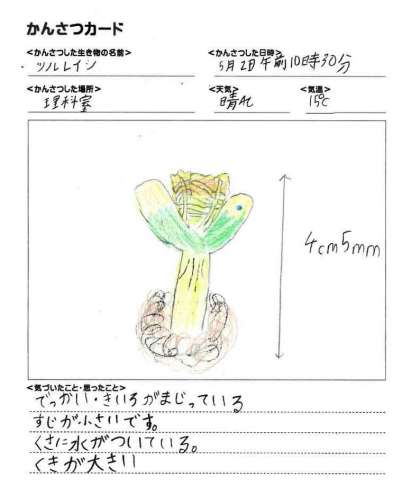 かんさつカード
<かんさつした生き物の名前>
ツルレイシ
<かんさつした日時>
5月2日午前10時30分
<かんさつした場所>
理科室
<天気>
晴れ
<気温>
15℃
4cm5mm
<気づいたこと・思ったこと>
でっかい・きいろがまじっている
すじが小さいです。
くさに水がついている。
くきが大きい